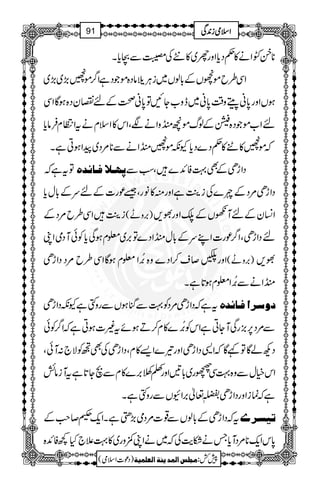 اسلامی زندگی
91
ناخن کٹوانے کا حکم دیا اور چھری کانٹے کی مصیبت سے بچایا۔
اسی طرح مونچھوں کے بالوں میں زہریلا مادہ موجود ہے اگر مونچھیں بڑی بڑی
ہوں اور پانی پیتے وقت پانی میں ڈوب جائیں تو پانی صحت کے لئے نقصان دہ ہوگا اسی
لئے اب موجودہ فیشن کے لوگ مونچھ منڈوانے لگے، اس کا اسلام نے یہ انتظام فرمایا
کہ مونچھیں کاٹنے کا حکم دے دیا کیونکہ مونچھیں منڈانے سے نامردی پیدا ہوتی ہے۔
داڑھی کے بھی بہت فائدے ہیں، سب سے پہلا فائدہ تو یہ ہے کہ
داڑھی مرد کے چہرے کی زینت ہے اور منہ کا نور، جیسے عورت کے لئے سر کے بال یا
انسان کے لئے آنکھوں کے پلک اور بھویں (بروئے) زینت ہیں اسی طرح مرد کے
لئے داڑھی، اگر عورت اپنے سر کے بال منڈا دے تو بری معلوم ہوگی یا کوئی آدمی اپنی
بھویں (بروئے) اور پلکیں صاف کرادے وہ بُرا معلوم ہوگا اسی طرح مرد داڑھی
منڈانے سے بُرا معلوم ہوتا ہے۔
دوسرا فائدہ یہ ہے کہ داڑھی مرد کو بہت سے گناہوں سے روکتی ہے کیونکہ داڑھی
سے مرد پر بزرگی آ جاتی ہے اس کو برے کام کرتے ہوئے یہ غیرت ہوتی ہے کہ اگر کوئی
دیکھ لے گا تو کہے گا کہ ایسی داڑھی اور تیرے ایسے کام، داڑھی کی بھی تجھ کو لاج نہ آئی،
اس خیال سے وہ بہت سی چھچھوری باتیں اور کھلم کھلا برے کام سے بچ جاتا ہے یہ آزمائش
ہے کہ نماز اور داڑھی بفضلہ تعالیٰ برائیوں سے روکتی ہے۔
تیسرے یہ کہ داڑھی کے بالوں سے قوتِ مردمی بڑھتی ہے۔ ایک حکیم صاحب کے
پاس ایک نامرد آیا جس نے شکایت کی کہ میں نے اپنی کمزوری کا بہت علاج کیا کچھ فائدہ
پیش کش: مجلس المدینة العلمیة (دعوتِ اسلامی)